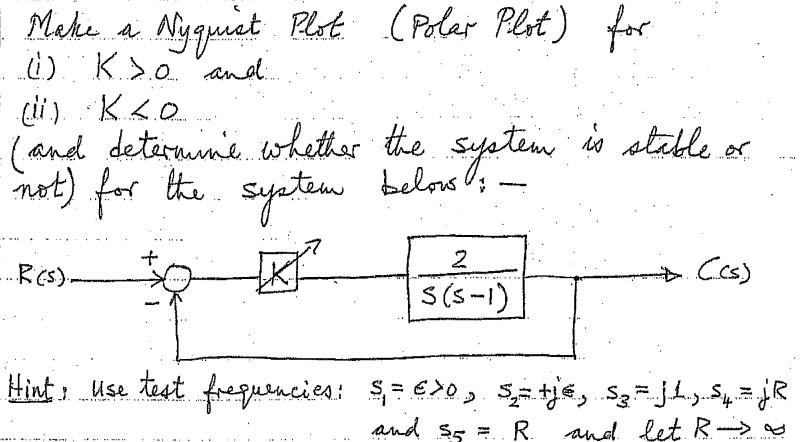 Make a Nyquist Plot (Polar Plot) for
(i) K > 0 and
(ii) K < 0
(and determine whether the system is stable or
not) for the system below : —
R(s) + − K 2 C(s)
S(s-1)
Hint: Use test frequencies: S₁ = ϵ>0, S₂ = +jϵ, S₃ = j1, S₄ = jR
and S₅ = R and let R → ∞